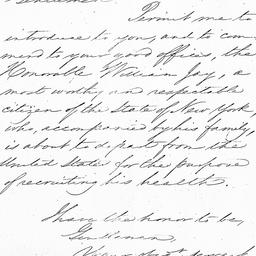 Gentlemen
Permit me to
introduce to you, and to com
mend to your good offices, the
Honorable William Jay, a
most worthy and respectable
citizen of the State of New York,
who, accompanied by his family,
is about to depart from the
United States for the purpose
of recruiting his health.
I have the honor to be,
Gentlemen,
Your obdt. servt.